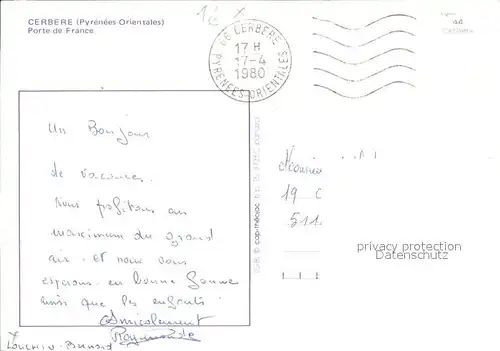 CERBERE (Pyrénées-Orientales)
Porte de France
DE CERBERE
17 H
17-4
1980
PYRENEES-ORIENTALES
Un Bonjour
de vacances.
Nous profitons au
maximum du grand
air. et nous vous
esperons en bonne forme
ainsi que les enfants.
Amicalement
Raymonde
19 C
511
privacy protection
Datenschutz